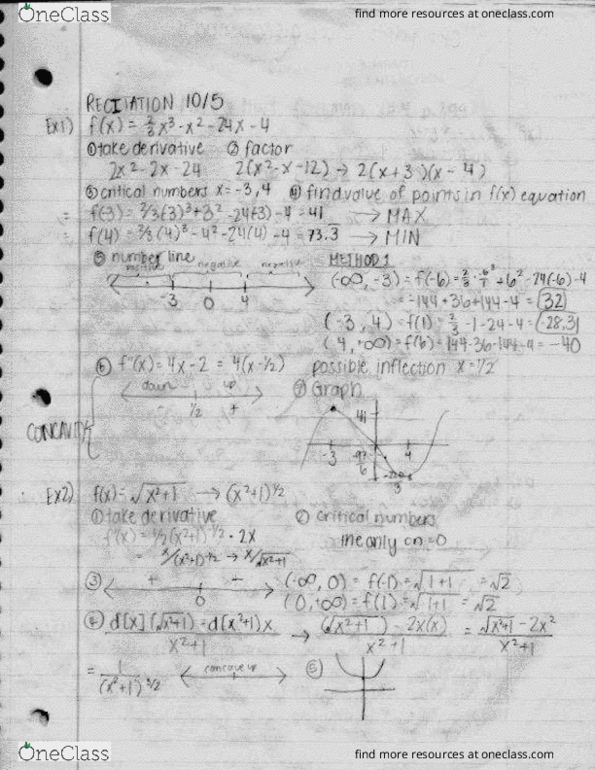 OneClass
find more resources at oneclass.com
RECITATION 10/5
Ex1) f(x) = 2/3 x³ - x² - 24x - 4
①take derivative ② factor
2x² - 2x - 24 2(x² - x - 12) → 2(x+3)(x-4)
③ critical numbers x = -3, 4 ④ find value of points in f(x) equation
= f(-3) = 2/3(-3)³ + 3² - 24(-3) - 4 = 41 → MAX
= f(4) = 2/3(4)³ - 4² - 24(4) - 4 = -73.3 → MIN
⑤ number line METHOD 1
positive negative negative
-3 0 4
(-∞, -3) = f(-6) = 2/3 · 6³/1 + 6² - 24(-6) - 4
= -144 + 36 + 144 - 4 = 32
(-3, 4) = f(1) = 2/3 - 1 - 24 - 4 = -28.3
(4, +∞) = f(6) = 144 - 36 - 144 - 4 = -40
⑥ f"(x) = 4x - 2 = 4(x - 1/2) possible inflection x = 1/2
down up
1/2 +
CONCAVITY
⑦ Graph
41
-3 4
Ex2) f(x) = √x²+1 → (x²+1)^1/2
①take derivative ② critical numbers
f'(x) = 1/2(x²+1)^-1/2 · 2x only on = 0
= x/(x²+1)^1/2 → x/√x²+1
③ - + (-∞, 0) = f(-1) = √1+1 = √2
0 (0, +∞) = f(1) = √1+1 = √2
④ d[x](√x²+1) - d[x²+1)x / x²+1 → (√x²+1) - 2x(x) / x²+1 = √x²+1 - 2x² / x²+1
= 1/(x²+1)^3/2 concave up ⑤
OneClass
find more resources at oneclass.com